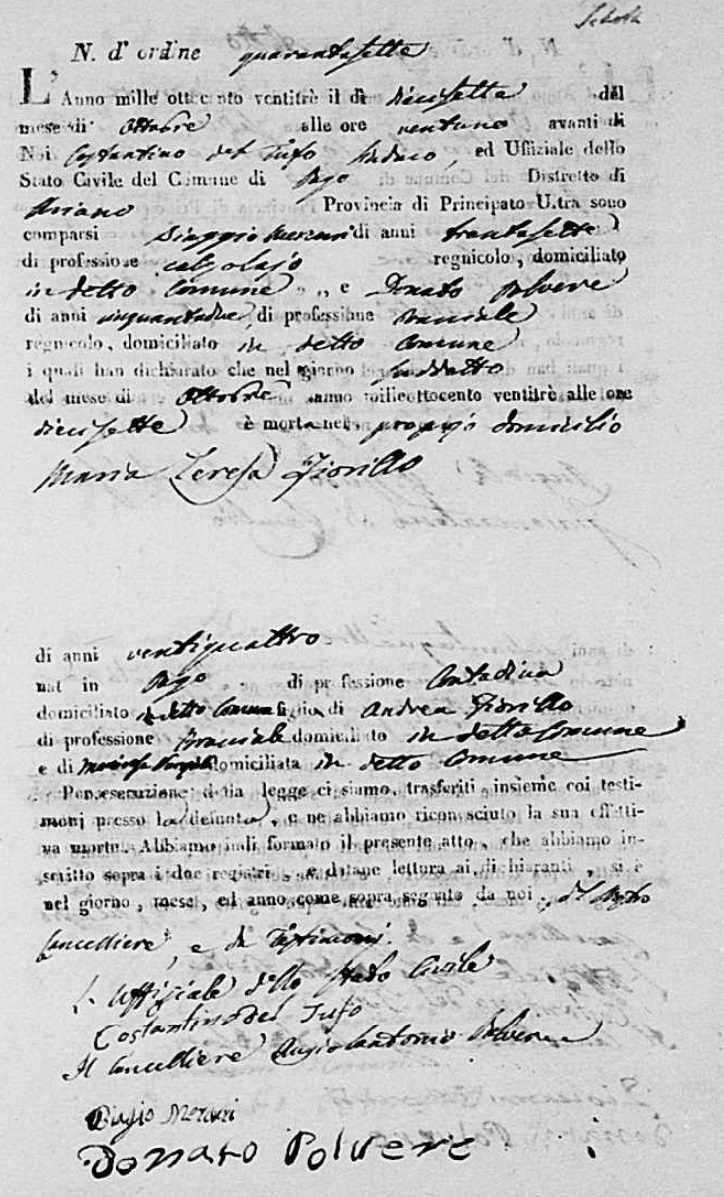 N. d' ordine quarantasette
L' Anno mille ottocento ventitrè il dì diecisette del
mese di Ottobre alle ore ventuno avanti di
Noi Costantino del Tufo Sindaco, ed Uffiziale dello
Stato Civile del Comune di Pago Distretto di
Ariano Provincia di Principato Ultra sono
comparsi Biaggio Mercuri di anni trentasette
di professione calzolajo regnicolo, domiciliato
in detto Comune „ e Donato Polvere
di anni cinquantadue, di professione Bracciale
regnicolo, domiciliato in detto Comune
i quali han dichiarato che nel giorno suddetto
del mese di Ottobre anno milleottocento ventitrè alle ore
diecisette è morta nel proprio domicilio
Maria Teresa Fiorillo
di anni ventiquattro
nat in Pago di professione Contadina
domiciliato in detto Comune figlia di Andrea Fiorillo
di professione Bracciale domiciliato in detto Comune
e di domiciliata in detto Comune
Per esecuzione della legge ci siamo trasferiti insieme coi testi-
monj presso la defunta, e ne abbiamo riconosciuto la sua effetti-
va morte. Abbiamo indi formato il presente atto, che abbiamo in-
scritto sopra i due registri, e datane lettura ai dichiaranti, si è
nel giorno, mese, ed anno come sopra segnato da noi, dal nostro
Cancelliere, e da Testimonj.
L' Uffiziale dello Stato Civile
Costantino del Tufo
Il Cancelliere Angiolantonio Polvere
Biagio Mercuri
Donato Polvere